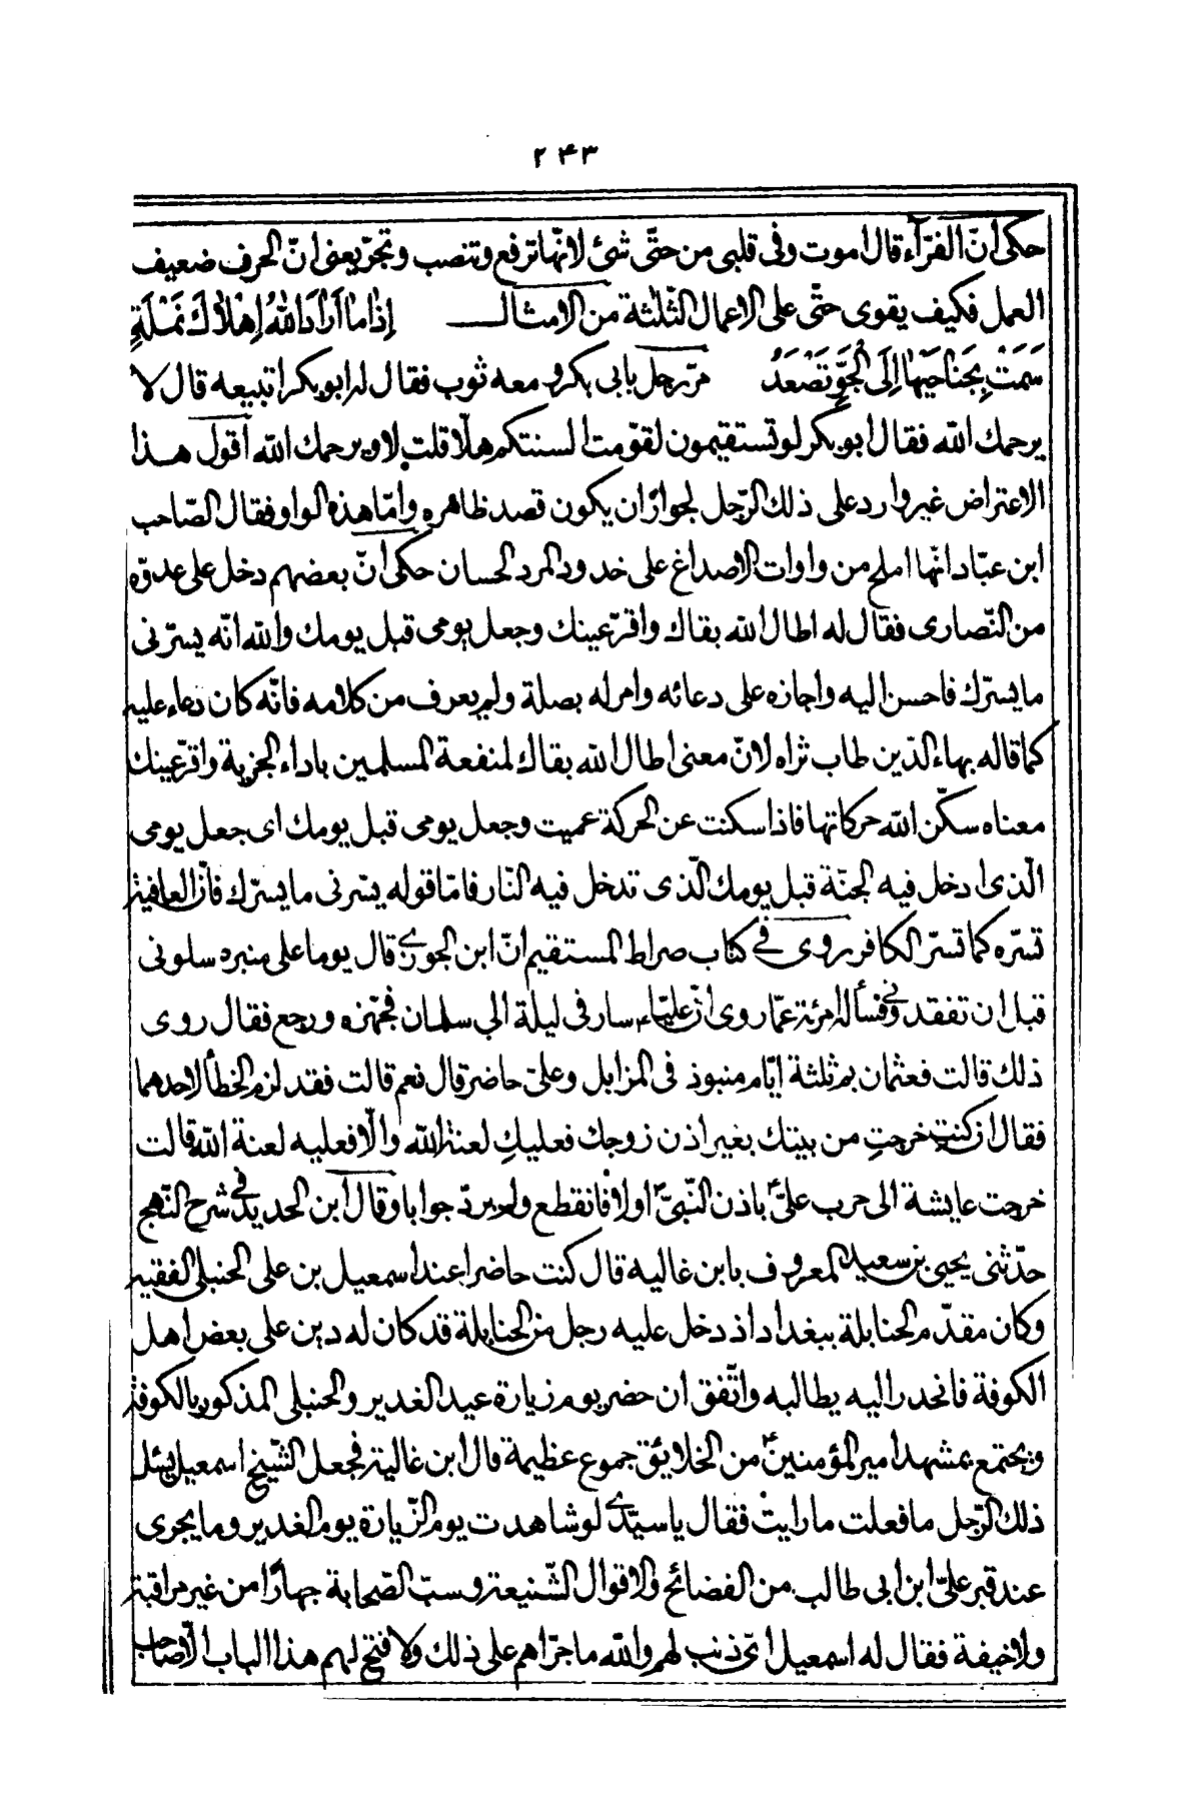 ۲۴۳
حكى انّ الفرّاء قال اموت وفى قلبى من حتّى شئ لانّها ترفع وتنصب وتجرّ يعنى انّ الحرف ضعيف
العمل فكيف يقوى حتّى على الاعمال الثّلثة من الامثال اِذٰا مٰا اَرٰادَ اللّٰهُ اِهْلٰاكَ نَمْلَةٍ
سَمَتْ بِجَنٰاحَيْهٰا اِلَى الْجَوِّ تَصْعَدُ مرّ رجل بابى بكر و معه ثوب فقال له ابو بكر اتبيعه قال لا
يرحمك اللّه فقال ابو بكر لو تستقيمون لقوّمت السنتكم هلّا قلت لا ويرحمك اللّه اقول هذا
الاعتراض غير وارد على ذلك الرّجل لجواز ان يكون قصد ظاهره وامّا هذه الواو فقال الصّاحب
ابن عبّاد انّها املح من واوات الاصداغ على خدود المرد الحسان حكى انّ بعضهم دخل على عدوّه
من النّصارى فقال له اطال اللّه بقاك واقرّ عينك وجعل يومى قبل يومك واللّه انّه يسرّنى
ما يسرّك فاحسن اليه واجازه على دعائه وامر له بصلة ولم يعرف من كلامه فانّه كان دعاء عليه
كما قاله بهاء الدّين طاب ثراه لانّ معنى اطال اللّه بقاك لمنفعة المسلمين باداء الجزية واقرّ عينك
معناه سكّن اللّه حركاتها فاذا سكنت عن الحركة عميت وجعل يومى قبل يومك اى جعل يومى
الّذى ادخل فيه الجنّة قبل يومك الّذى تدخل فيه النّار فامّا قوله يسّرنى ما يسرّك فانّ العافية
تسّره كما تسّر الكافر روى فى كتاب صراط المستقيم انّ ابن الجوزى قال يوما على منبره سلونى
قبل ان تفقدونى فسأله امرئة عمّا روى انّ عليّا سار فى ليلة الى سلمان فجهّزه و رجع فقال روى
ذلك قالت فعثمان بم ثلثة ايّام منبوذ فى المزابل وعلىّ حاضر قال نعم قالت فقد لزم الخطأ لاحدهما
فقال ان كنتِ خرجتِ من بيتك بغير اذن زوجك فعليكِ لعنة اللّه والّا فعليه لعنة اللّه قالت
خرجت عايشة الى حرب علىّ باذن النّبىّ اولا فانقطع ولم يردّ جوابا وقال ابن الحديد فى شرح النّهج
حدّثنى يحيى بن سعيد المعروف بابن غاليه قال كنت حاضرا عند اسمعيل بن على الحنبلى الفقيه
وكان مقدّم الحنابلة ببغداد اذ دخل عليه رجل من الحنابلة قد كان له دين على بعض اهل
الكوفة فانحدر اليه يطالبه واتّفق ان حضر يوم زيارة عيد الغدير والحنبلى المذكور بالكوفة
ويجتمع بمشهد امير المؤمنين من الخلايق جموع عظيمة قال ابن غالية فجعل الشّيخ اسمعيل يسئل
ذلك الرّجل ما فعلت ما رايت فقال يا سيّدى لو شاهدت يوم الزّيارة يوم الغدير وما يجرى
عند قبر علىّ ابن ابى طالب من الفضائح والاقوال الشّنيعة وسبّ الصّحابة جهارًا من غير مراقبة
ولا خيفة فقال له اسمعيل اىّ ذنب لهم واللّه ما جرّاهم على ذلك ولا فتح لهم هذا الباب الّا صاحب